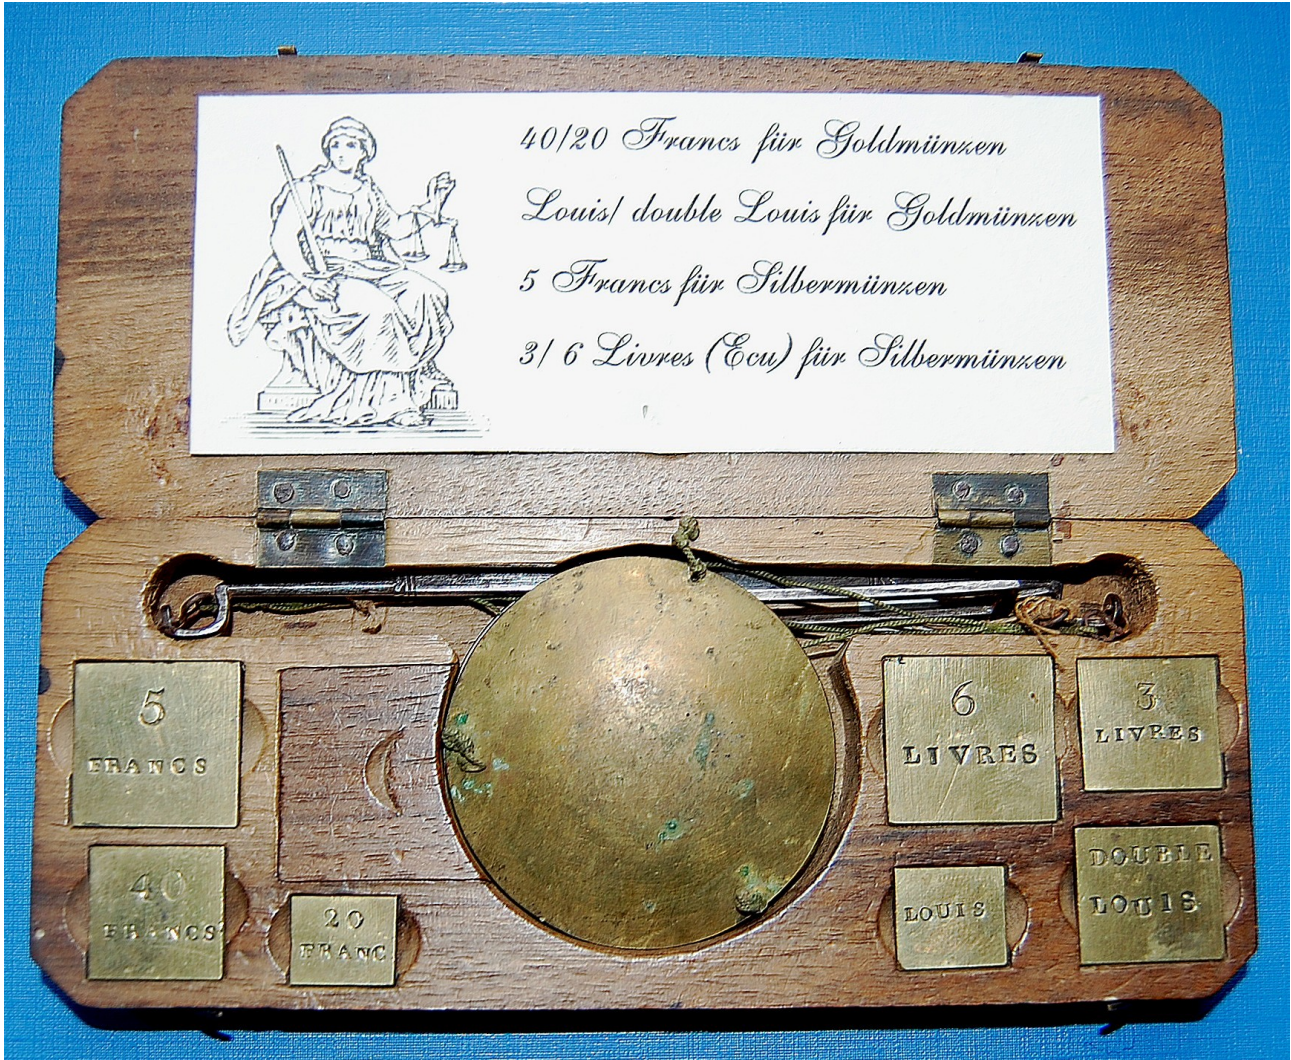 40/20 Francs für Goldmünzen
Louis/ double Louis für Goldmünzen
5 Francs für Silbermünzen
3/ 6 Livres (Ecu) für Silbermünzen
5
FRANCS
6
LIVRES
3
LIVRES
40
FRANCS
20
FRANC
LOUIS
DOUBLE
LOUIS